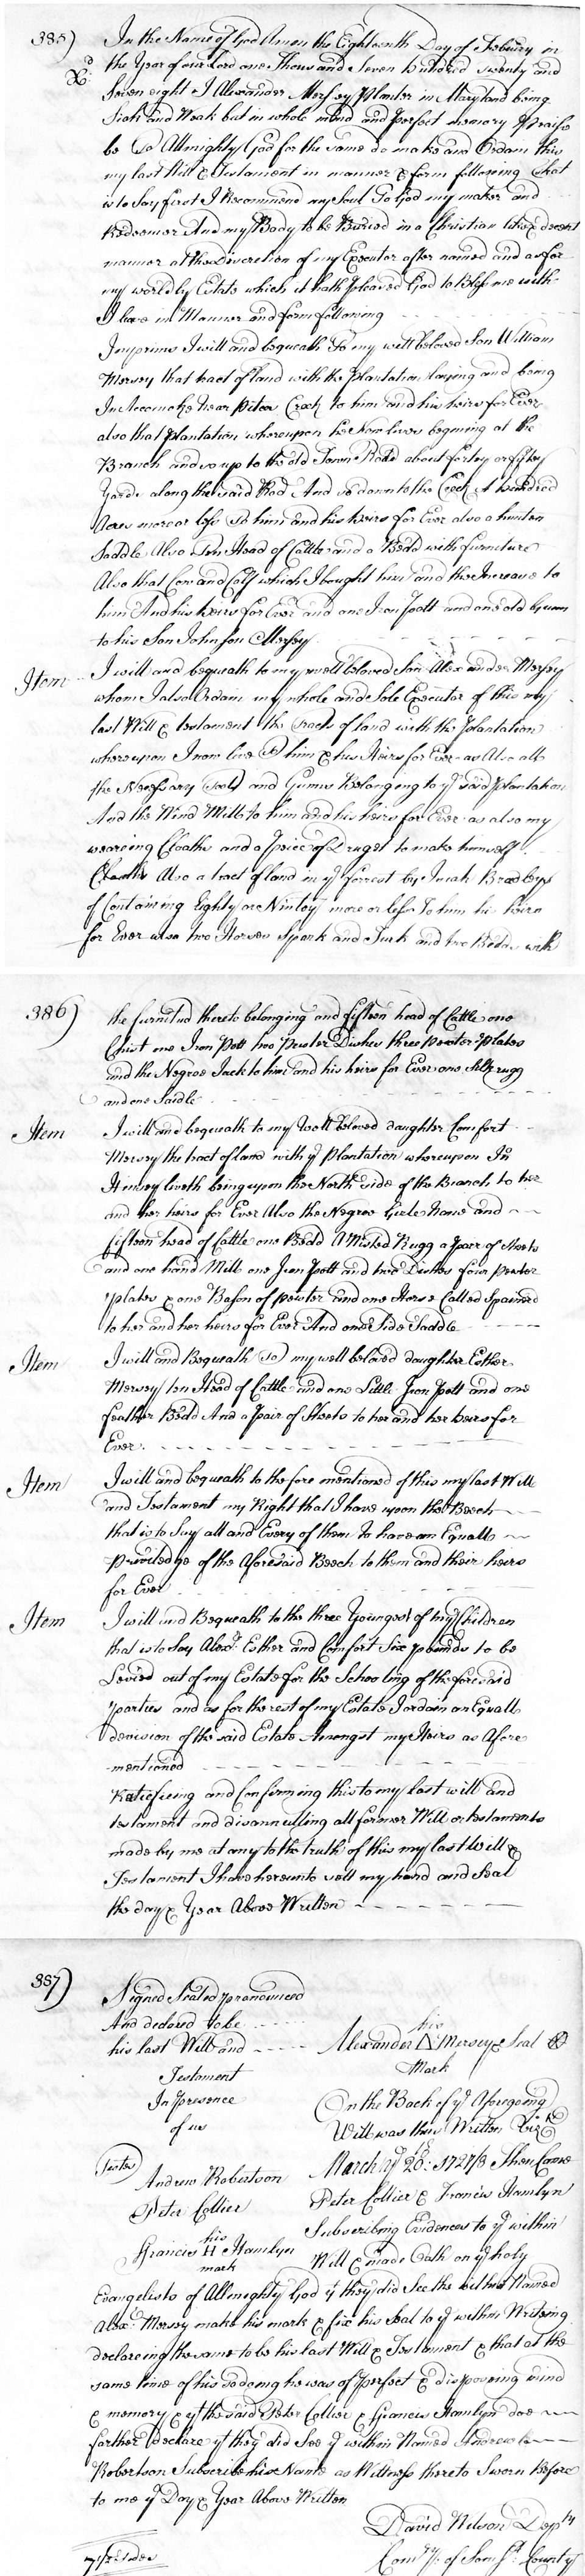 385)
In the Name of God Amen the Eighteenth Day of Febuery in
the Year of our Lord one Thousand Seven hundred twenty and
Seven eight I Alexander Mersey Planter in Maryland being
Sick and Weak but in whole mind and perfect memory Praise
be to Allmighty God for the same do make and Ordain this
my last Will & Testament in manner & form following that
is to Say first I Recommend my Soul to God my maker and
Redeemer And my Body to be Buried in a Christian like decent
manner at the Discretion of my Executor after named and as for
my worldly Estate which it hath pleased God to Bless me with
I leave in Manner and form following
Imprims I will and bequeath to my well beloved Son William
Mersey that tract of land with the Plantation laying and being
In Accomake near Pitea Creek to him and his heirs for Ever
also that Plantation whereupon he now lives begening at the
Branch and so up to the old Town Rode about forty or fifty
Yards along the said Rod And so down to the Creek A hundred
Acres more or less to him and his heirs for Ever also a hunten
Saddle Also Ten Head of Cattle and a Bedd with furniture
Also that Cow and Calf which I bought him and the Increase to
him And his heirs for Ever and one Iron Pott and one old Gunn
to his Son Johnson Mersey
Item I will and bequeath to my well beloved Son Alexander Mersey
whom I also Ordain my whole and Sole Executor of this my
last Will & testament the tract of land with the Plantation
whereupon I now live to him & his Heirs for Ever as Also all
the Nessesary tools and Gunns Belonging to ye said plantation
And the Wind Mill to him and his heirs for Ever as also my
weareing Cloaths and a peice of Druget to make himself
Cloaths Also a tract of land in ye forrest by Bradleys
of Containing Eighty or Ninley more or less To him his heirs
for Ever also two Horses Spark and Turk and two Beds with
386)
the furnitud thereto belonging and fifteen head of Cattle one
Chist one Iron Pott two Pewter Dishes three pewter Plates
and the Negroe Jack to him and his heirs for Ever one Silk rugg
and one Sadle
Item I will and bequeath to my Well beloved daughter Comfort
Mersey the tract of land with ye Plantation whereupon
liveth being upon the North side of the Branch to her
and her heirs for Ever Also the Negroe Girle and
fifteen head of Cattle one Bedd A Rugg a Pair of Sheets
and one hand Mill one Iron Pott and two Dishes four pewter
plates & one Bason of pewter and one Horse Called Spaniard
to her and her heirs for Ever And one Side Saddle
Item I will and Bequeath (to) my well beloved daughter Esther
Mersey ten Head of Cattle and one Little Iron Pott and one
feather Bedd And a pair of Sheets to her and her heirs for
Ever
Item I will and bequeath to the fore mentioned of this my last Will
and Testament my Right that I have upon the Beech
that is to Say all and Every of them to have an Equall
priviledge of the Aforesaid Beech to them and their heirs
for Ever
Item I will and Bequeath to the three Youngest of my Children
that is to Say Alexr. Esther and Comfort Six pounds to be
Levied out of my Estate for the Schooling of the foresaid
parties and as for the rest of my Estate I ordain an Equall
devision of the said Estate Amongst my Heirs as Afore
mentioned
Ratiefieing and Confirming this to my last will and
testament and disannulling all former Will or testaments
made by me at any to the truth of this my last Will &
Testament I have hereunto sett my hand and Seal
the day & Year Above Written
387)
Signed Sealed pronounced
And declared to be
his last Will and
Testament
In presence
of us
his
Alexander Mersey & Seal
Mark
On the Back of ye Aforegoing
Will was thus Written Vizt
Testes
Andrew Robertson
Peter Collier
his
Francis H Hamlyn
mark
March ye 20: 1727/8 Then Came
Peter Collier & Francis Hamlyn
Subscribing Evidences to ye within
Will & made Oath on ye holy
Evangelists of Allmighty God yt they did See the within Named
Alexr. Mersey make his mark & fix his Seal to ye within Writeing
declareing the same to be his last Will & Testament & that at the
same time of his so doing he was of perfect & dispossing mind
& memory & yt the said Peter Collier & Francis Hamlyn doe
farther declare yt they did See ye within Named Andrew
Robertson Subscribe his Name as Wittness thereto Sworn before
to me ye Day & Year Above Written
David Wilson Depty
Comry. of Somst. County